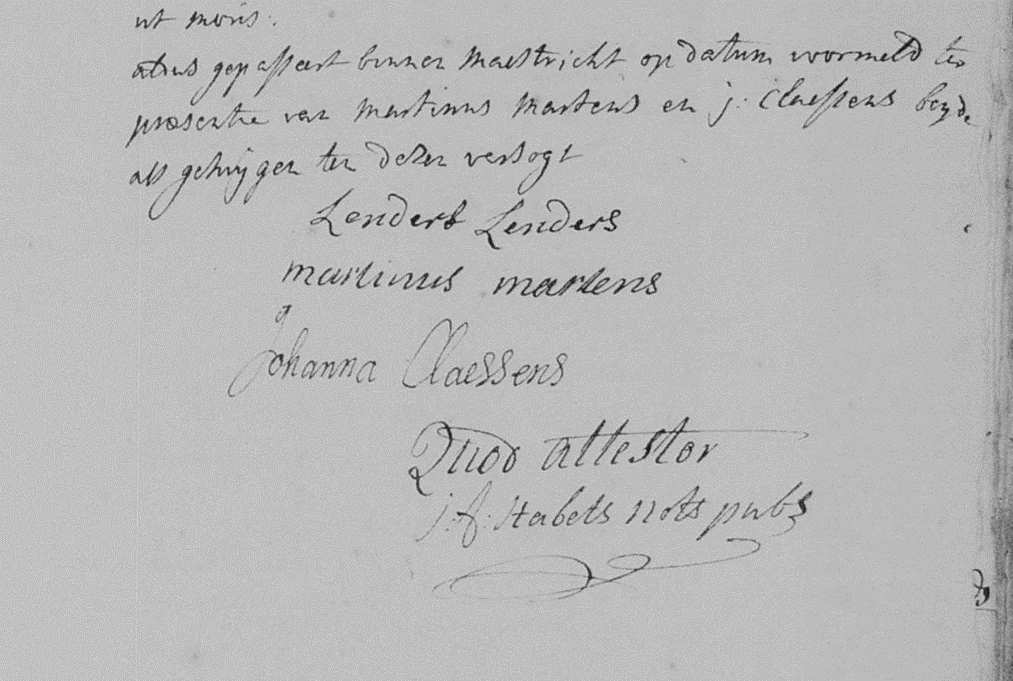 ut moris.
aldus gepasseert binnen Maestricht op datum voormeld ter
presentie van Martinus Martens en j: Claessens beyde
als getuygen ter dezen versogt
Lendert Lenders
martinus martens
Johanna Claessens
Quod attestor
j: f: Habets nots pubs